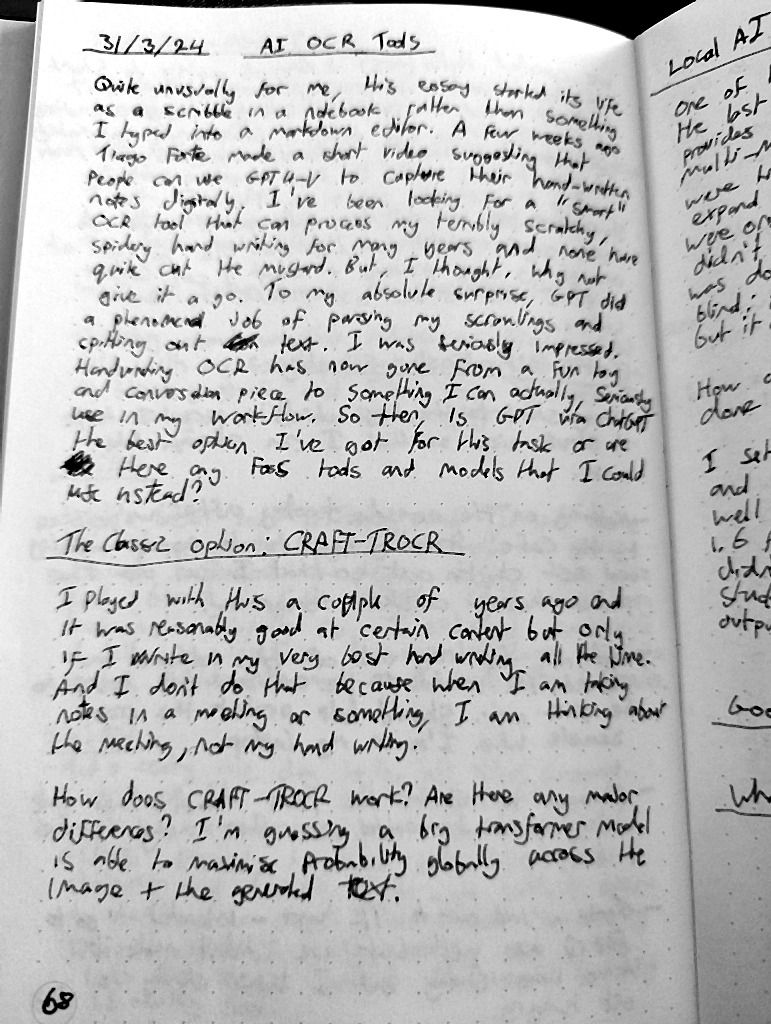 31/3/24 AI OCR Tools
Quite unusually for me, this essay started its life
as a scribble in a notebook rather than something
I typed into a markdown editor. A few weeks ago
Tiago Forte made a short video suggesting that
people can use GPT4-V to capture their hand-written
notes digitally. I've been looking for a "smart"
OCR tool that can process my terribly scratchy,
spidery hand writing for many years and none have
quite cut the mustard. But, I thought, why not
give it a go. To my absolute surprise, GPT did
a phenomenal job of parsing my scrawlings and
spitting out text. I was seriously impressed.
Handwriting OCR has now gone from a fun toy
and conversation piece to something I can actually, seriously
use in my workflow. So then, is GPT via ChatGPT
the best option I've got for this task or are
there any FOSS tools and models that I could
use instead?
The Classic option: CRAFT-TROCR
I played with this a couple of years ago and
it was reasonably good at certain content but only
if I write in my very best hand writing all the time.
And I don't do that because when I am taking
notes in a meeting or something, I am thinking about
the meeting, not my hand writing.
How does CRAFT-TROCR work? Are there any major
differences? I'm guessing a big transformer model
is able to maximise probability globally across the
image + the generated text.
68
Local AI
one of
the last
provides
multi-m
were
expand
were
didn't
was
blind;
but it
How
done
I set
and
well
1.6
didn
stud
outpu
Goo
Wh